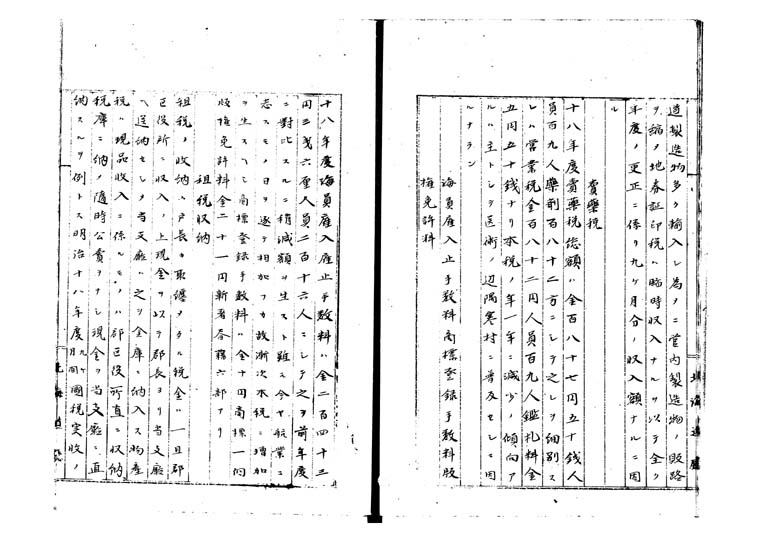 造製造物多ク輸入シ為メニ管内製造物ノ販路
ヲ縮ノ地券証印税ハ臨時収入ナルヲ以テ全ク
年度ノ更正ニ係リ九ヶ月分ノ収入額ナルニ因
ル
賣藥税
十八年度賣藥税総額ハ金百八十七円五十銭人
員百九人藥剤百八十二方ニシテ之レヲ細別ス
レハ営業税金百八十二円人員百九人鑑札料金
五円五十銭ナリ本税ノ年一年ニ減少ノ傾向ア
ルハ主トシテ医術ノ辺隅寒村ニ普及セシニ因
ルナラン
海員雇入止手数料商標登録手数料版
権免許料
十八年度海員雇入雇止手数料ハ金二百四十三
円三銭六厘人員二百十六人ニシテ之ヲ前年度
ニ對比スルニ稍減額ヲ生スト雖モ今ヤ航業ニ
志スモノ日ヲ逐テ相加フカ故漸次本税ニ増加
ヲ生スヘシ商標登録手数料ハ金十円商標一個
版権免許料金二十一円新著各稱六部ナリ
租税収納
租税ノ収納ハ戸長ノ取纏メタル税金ハ一旦郡
区役所ニ収入ノ上現金ヲ以テ郡長ヨリ当支廳
ヘ送納セシメ当支廳ハ之ヲ金庫ニ納入ス物産
税ハ現品収入ニ係ルモノハ郡区役所直ニ収納
税庫ニ納メ随時公賣ヲナシ現金ヲ当支廳ニ直
納スルヲ例トス明治十八年度九ヶ月間國税実収ノ
北海道廳
北海道廳